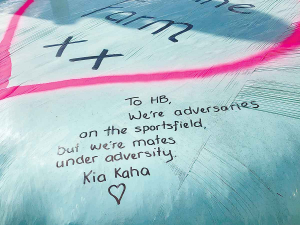 Farm
x x
To HB,
We're adversaries
on the sportsfield,
but we're mates
under adversity.
Kia Kaha
♡